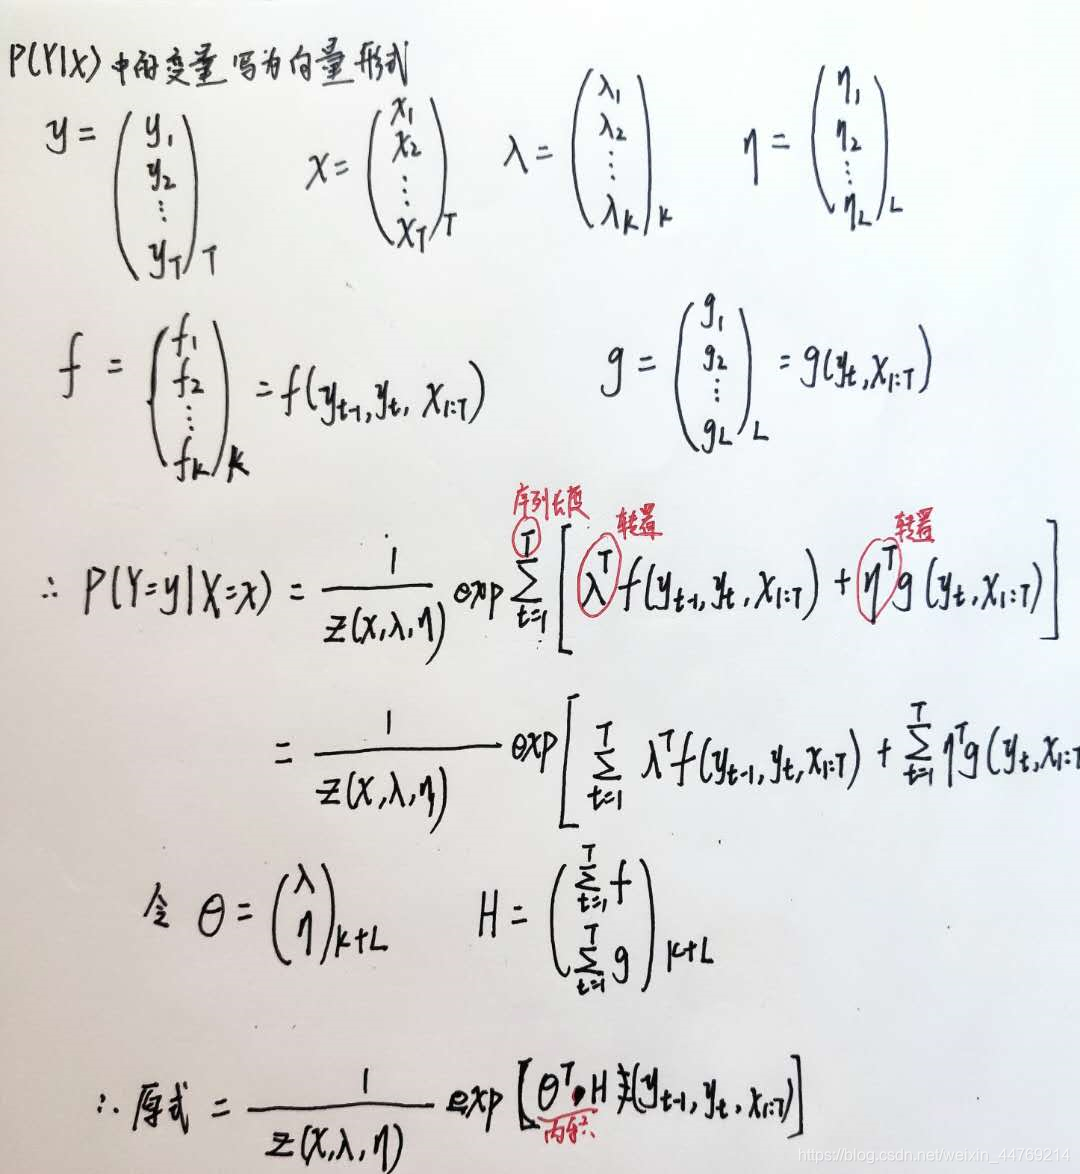 P(Y|X) 中的变量写为向量形式
y = (y₁ y₂ ⋮ y_T)_T  x = (x₁ x₂ ⋮ x_T)_T  λ = (λ₁ λ₂ ⋮ λ_K)_K  η = (η₁ η₂ ⋮ η_L)_L
f = (f₁ f₂ ⋮ f_K)_K = f(y_{t-1}, y_t, x_{1:T})  g = (g₁ g₂ ⋮ g_L)_L = g(y_t, x_{1:T})
序列长度 转置 转置
∴ P(Y=y|X=x) = 1/z(x,λ,η) exp ∑_{t=1}^T [λ^T f(y_{t-1}, y_t, x_{1:T}) + η^T g(y_t, x_{1:T})]
= 1/z(x,λ,η) exp[∑_{t=1}^T λ^T f(y_{t-1}, y_t, x_{1:T}) + ∑_{t=1}^T η^T g(y_t, x_{1:T}
令 θ = (λ η)_{K+L}  H = (∑_{t=1}^T f ∑_{t=1}^T g)_{K+L}
∴ 原式 = 1/z(x,λ,η) exp[θ^T · H (y_{t-1}, y_t, x_{1:T})]
内积
https://blog.csdn.net/weixin_44769214